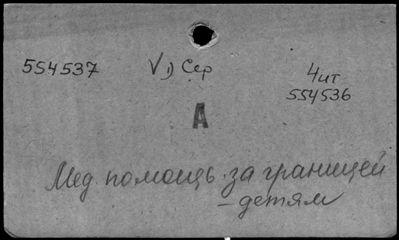 554537 V) Сер 4ит
554536
A
Мед помощь за границей
- детям